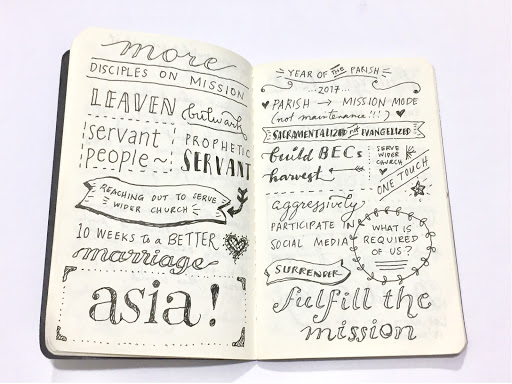 more
DISCIPLES ON MISSION
LEAVEN bulwark
servant
people~
PROPHETIC
SERVANT
REACHING OUT TO SERVE
WIDER CHURCH
10 WEEKS to a BETTER
marriage
asia!
YEAR OF THE PARISH
...2017...
PARISH → MISSION MODE
(not maintenance!!!)
SACRAMENTALIZED not EVANGELIZED
build BECs
harvest
SERVE
WIDER
CHURCH
ONE TOUCH
aggressively
PARTICIPATE IN
SOCIAL MEDIA
WHAT IS
REQUIRED
OF US?
SURRENDER
fulfill the
mission